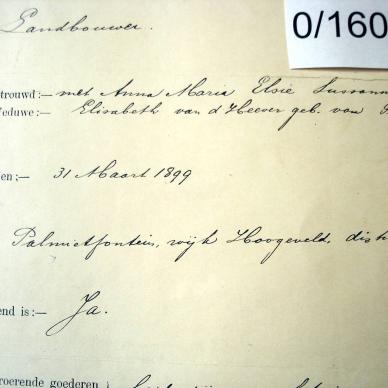 0/160
Landbouwer.
trouwd:— met Anna Maria Elsie Susanna
Weduwe:— Elisabeth van d Heever geb. van
en;— 31 Maart 1899
Palmietfontein, wijk Hoogeveld, dist
end is:— Ja.
roerende goederen